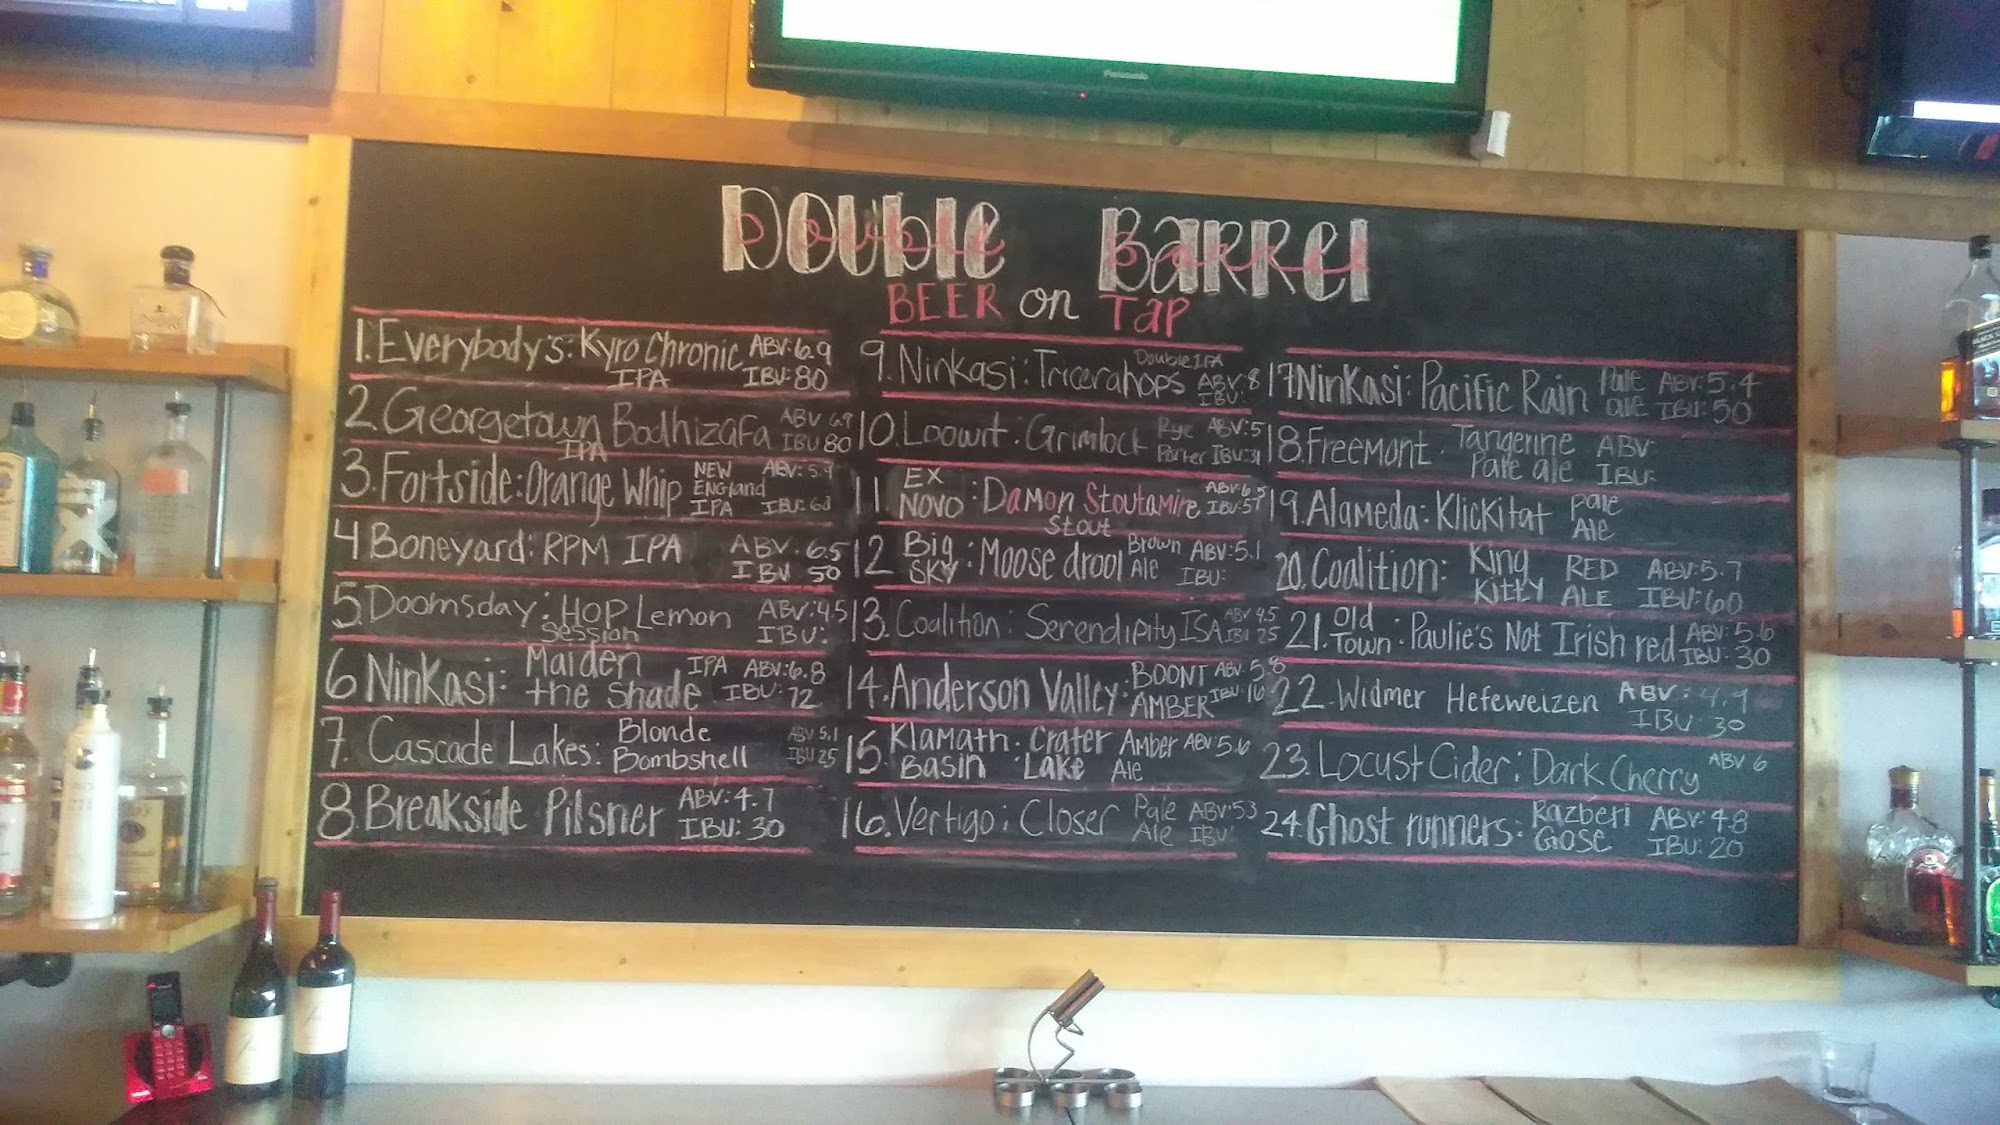 Panasonic
Double Barrel
BEER on TAP
1. Everybody's: Kyro Chronic ABV: 6.9
IPA IBU: 80
2. Georgetown Bodhizafa ABV 6.9
IPA IBU 80
3. Fortside: Orange Whip NEW ENGland IPA ABV: 5.9
IBU: 63
4 Boneyard: RPM IPA ABV. 6.5
IBU 50
5. Doomsday: HOP Lemon ABV: 4.5
Session IBU:
6 Ninkasi: Maiden the Shade IPA ABV: 6.8
IBU: 72
7. Cascade Lakes: Blonde Bombshell ABV 5.1
IBU 25
8. Breakside Pilsner ABV: 4.7
IBU: 30
9. Ninkasi: Tricerahops Double IPA
ABV: 8
IBU:
10. Loowit: Grimlock Rye Porter ABV: 5
IBU: 31
11. EX NOVO: Damon Stoutamire ABV: 6.5
Stout IBU: 57
12 Big SKY: Moose drool Brown Ale ABV: 5.1
IBU:
13. Coalition: Serendipity ISA ABV 4.5
IBU 25
14. Anderson Valley: BOONT AMBER ABV. 5.8
IBU: 16
15. Klamath Basin: Crater Lake Amber Ale ABV: 5.6
16. Vertigo: Closer Pale Ale ABV: 5.3
IBU:
17. Ninkasi: Pacific Rain Pale ale ABV: 5.4
IBU: 50
18. Freemont. Tangerine Pale ale ABV:
IBU:
19. Alameda: Klickitat Pale Ale
20. Coalition: King Kitty RED ALE ABV: 5.7
IBU: 60
21. Old Town: Paulie's Not Irish red ABV: 5.6
IBU: 30
22. Widmer Hefeweizen ABV: 4.9
IBU: 30
23. Locust Cider: Dark Cherry ABV 6
24. Ghost runners: Razberi Gose ABV: 4.8
IBU: 20